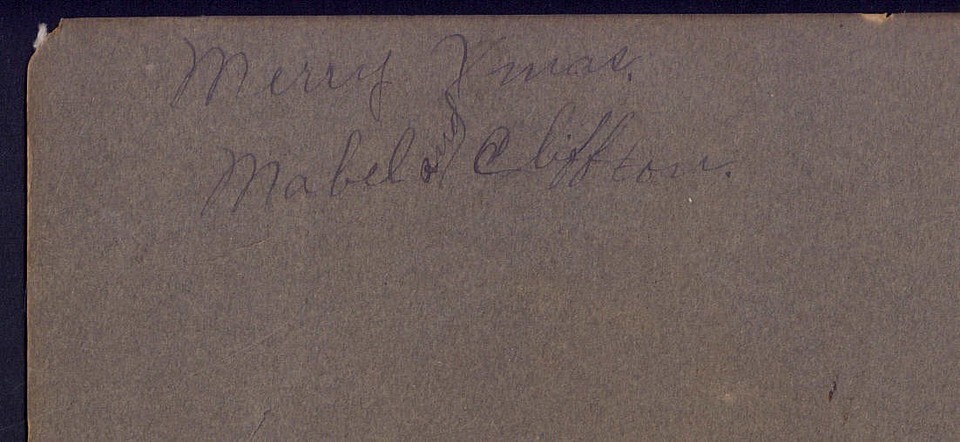 Merry Xmas.
Mabel and Cliffton.